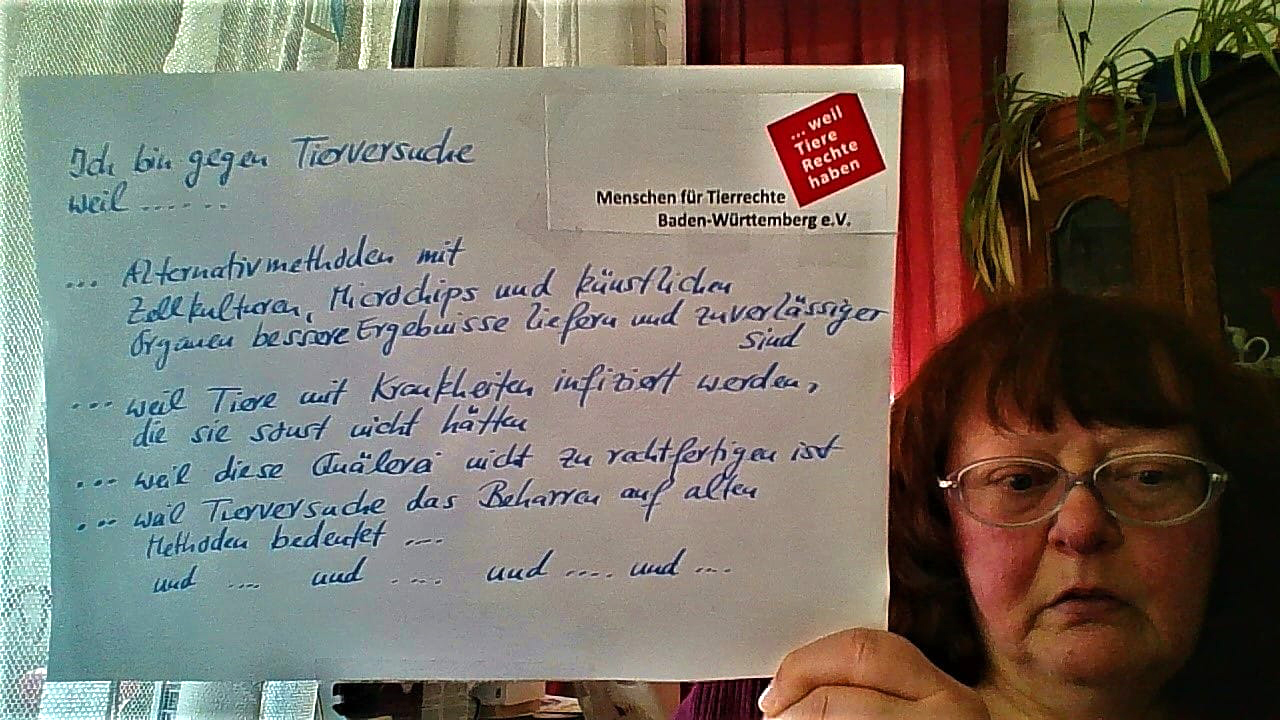 ... weil
Tiere
Rechte
haben
Menschen für Tierrechte
Baden-Württemberg e.V.
Ich bin gegen Tierversuche
weil ......
... Alternativmethoden mit
Zellkulturen, Microchips und künstlichen
Organen bessere Ergebnisse liefern und zuverlässiger
sind
... weil Tiere mit Krankheiten infiziert werden,
die sie sonst nicht hätten
... weil diese Quälerei nicht zu rechtfertigen ist
... weil Tierversuche das Beharren auf alten
Methoden bedeutet ....
und .... und .... und .... und ....